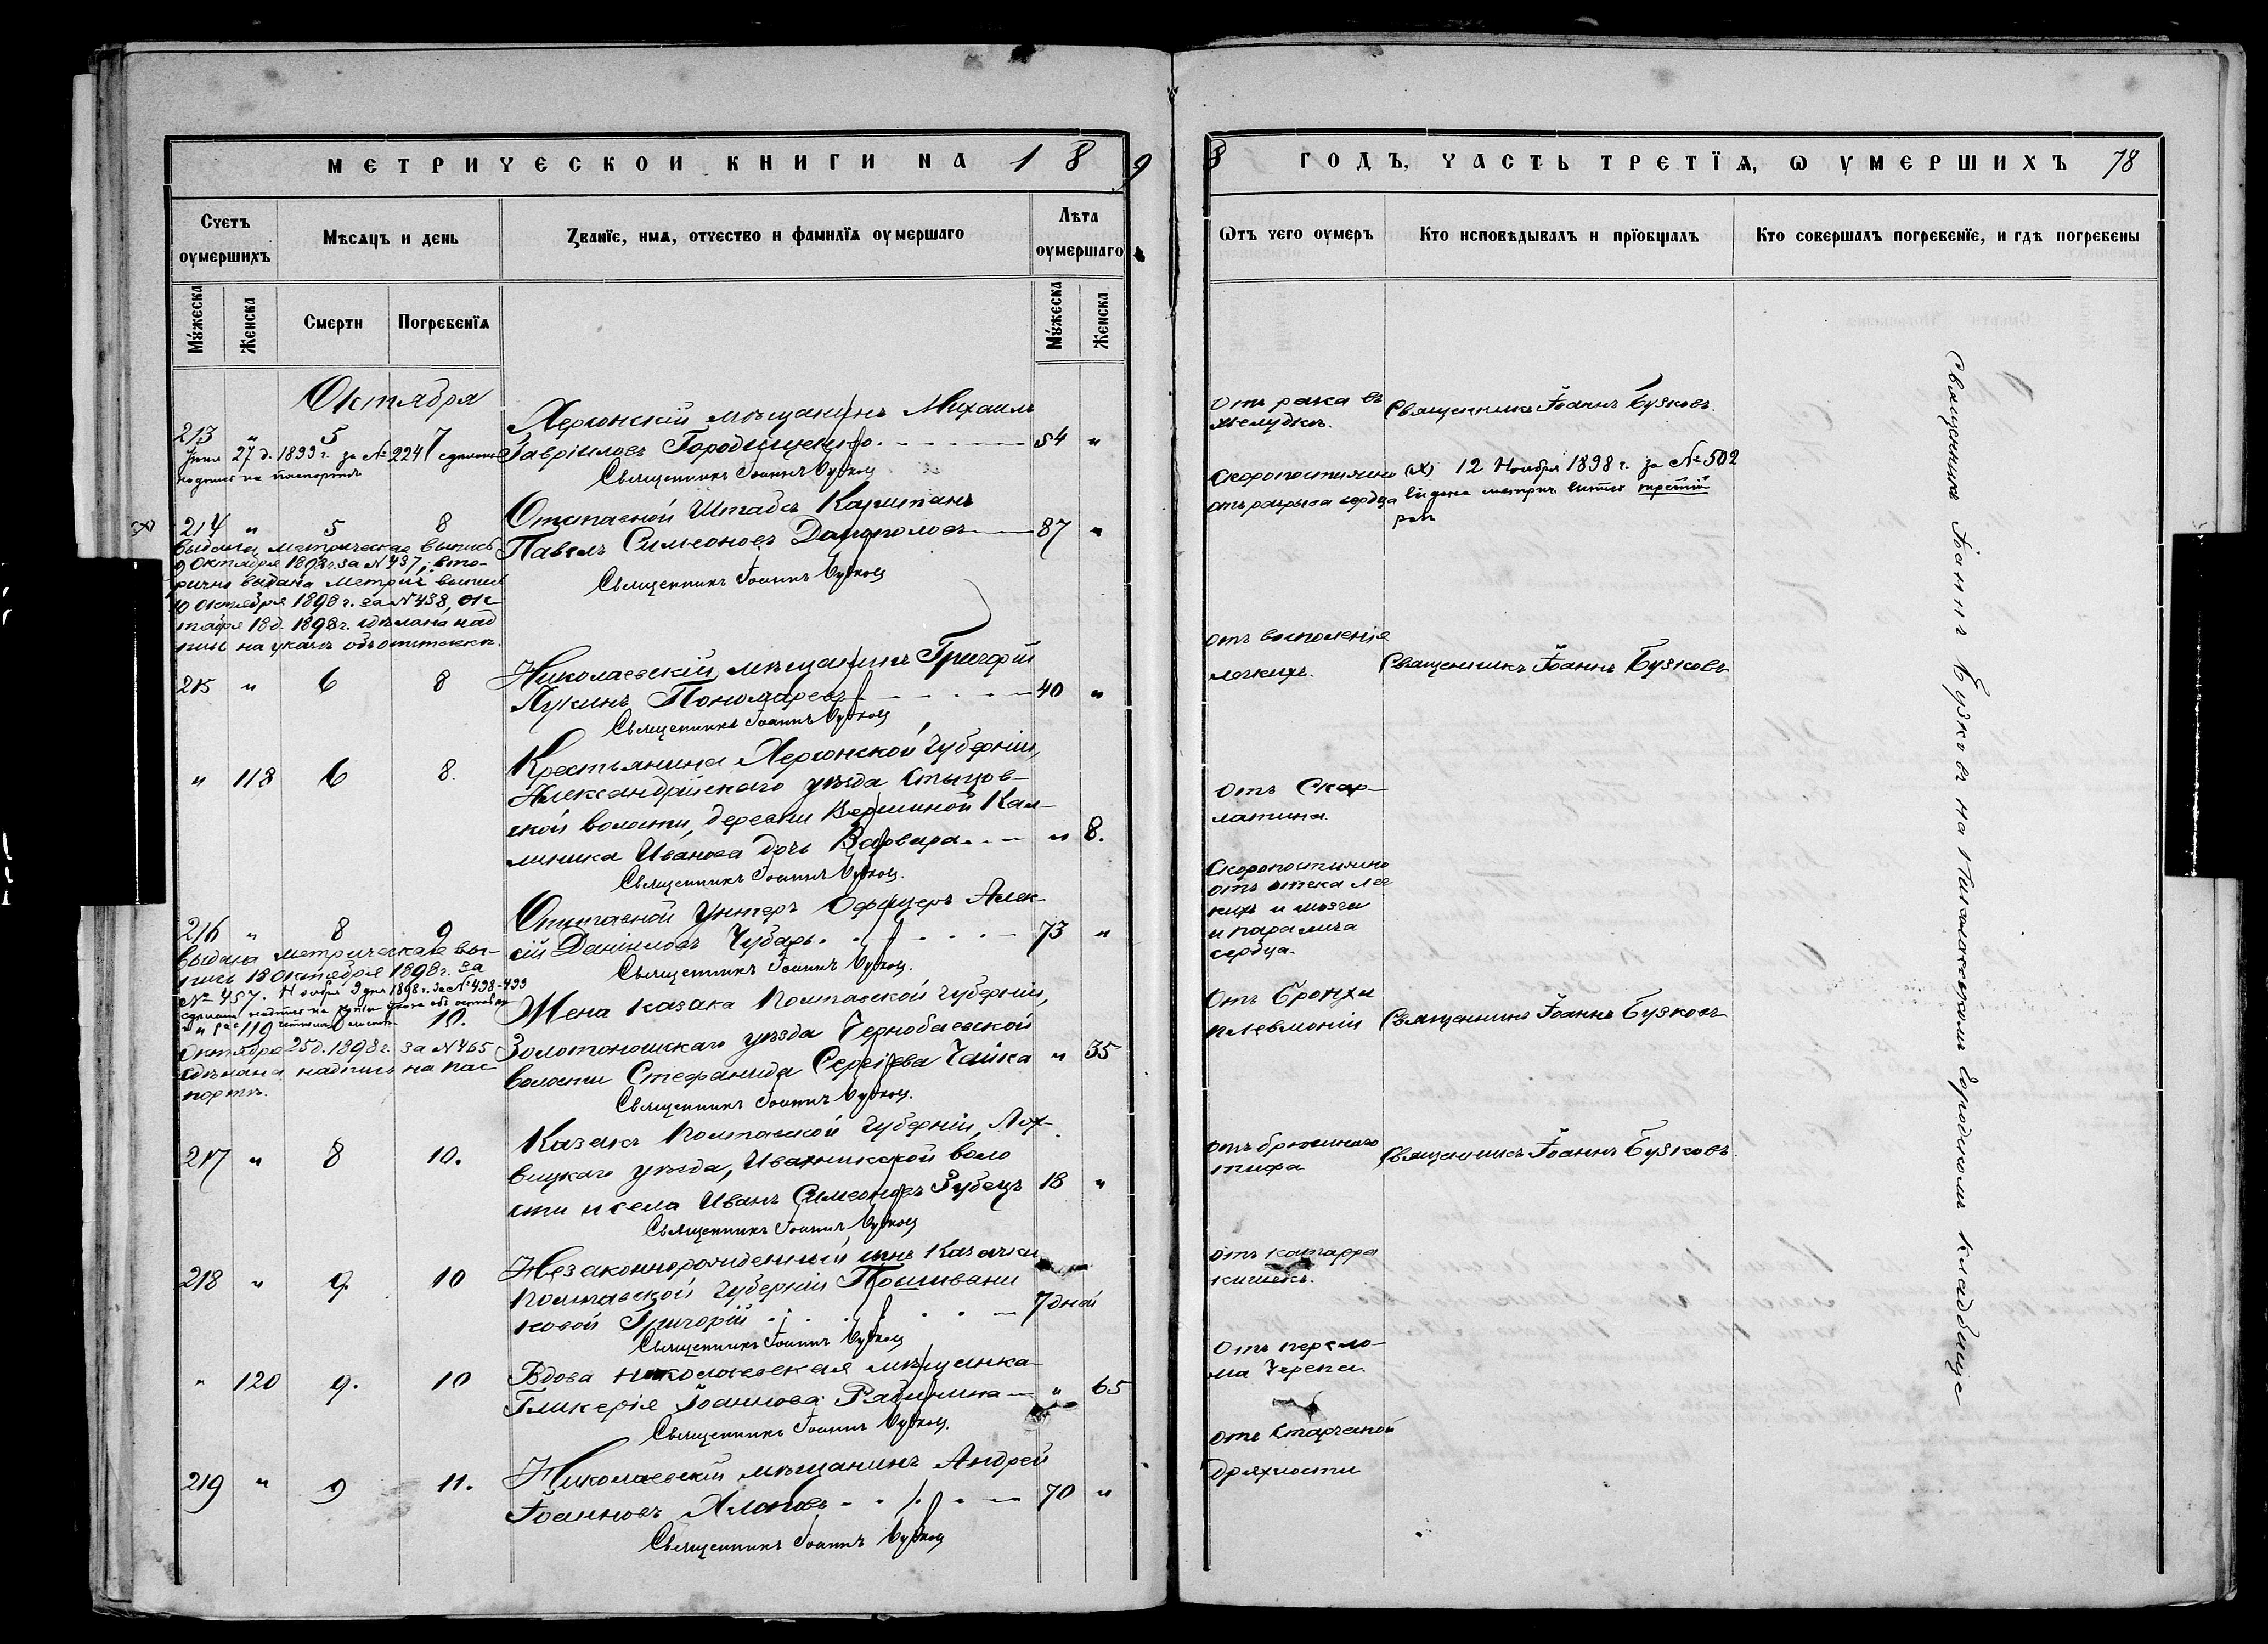 МЕТРИЧЕСКОЙ КНИГИ НА 1 8 9
Счетъ оумершихъ
Мѣсѧцъ и день
Званїе, имѧ, отчество и фамилїѧ оумершаго
Лѣта оумершаго
Мꙋжеска
Женска
Смерти
Погребенїѧ
Мꙋжеска
Женска
Октября
213 " 5 7
Херсонскій мѣщанинъ Михаилъ
Гавріиловъ Городищенко 54 "
27 д. 1899 г. за № 2247 сдѣлана
надпись на паспортѣ
Священникъ Іоаннъ Бузковъ
(х) 214 " 5 8
Отставной Штабсъ Капитанъ
Павелъ Симеоновъ 87 "
Священникъ Іоаннъ Бузковъ
выдана метрическая выпись
9 Октября 1898 г. за N 437; вто-
рично выдана метрич. выпись
10 Октября 1898 г. за N 438, Ок-
тября 18 д. 1898 г. сдѣлана над
пись на указѣ объ отставкѣ.
215 " 6 8
Николаевскій мѣщанинъ Григорій
Лукинъ Пономаревъ 40 "
Священникъ Іоаннъ Бузковъ
" 118 6 8.
Крестьянина Херсонской губерніи,
Александрійскаго уѣзда
ской волости, деревни Вершиной Кам-
Иванова дочь Варвара " 8.
Священникъ Іоаннъ Бузковъ.
216 " 8 9
Отставной Унтеръ Офицеръ Алек-
сій Даніиловъ Чубарь 73 "
Священникъ Іоаннъ Бузковъ.
выдана метрическая вы-
пись 18 Октября 1898 г. за
№ 457. Ноября 9 дня 1898 г. за № 498-499
сдѣлана надпись на
119 8 10.
Жена казака Полтавской губерніи,
Золотоношскаго уѣзда Чернобаевской
волости Стефанида Сергіева Чайка " 35
Священникъ Іоаннъ Бузковъ.
Октября 25 д. 1898 г. за N 465
сдѣлана надпись на пас
портѣ.
217 " 8 10.
Казакъ Полтавской губерніи, Лох-
вицкаго уѣзда, волo
сти и села Иванъ Симеоновъ Зубецъ 18 "
Священникъ Іоаннъ Бузковъ
218 " 9. 10
Незаконнорожденный сынъ Казачки
Полтавской губерніи Пошивани
ковой Григорій 7 дней
Священникъ Іоаннъ Бузковъ
" 120 9. 10
Вдова Николаевская мѣщанка
Гликерія Іоаннова " 65
Священникъ Іоаннъ Бузковъ.
219 " 9 11.
Николаевскій мѣщанинъ Андрей
Іоанновъ 70 "
Священникъ Іоаннъ Бузковъ
8 ГОДЪ, ЧАСТЬ ТРЕТЇѦ, Ѡ ОУМЕРШИХЪ 78
Ѿтъ чего оумеръ
Кто исповѣдывалъ и прїобщалъ
Кто совершалъ погребенїе, и гдѣ погребены
Отъ рака въ
желудкѣ.
Священникъ Іоаннъ Бузковъ.
Скоропостижно
отъ разрыва сердца
(х) 12 Ноября 1898 г. за № 502
выдана метрич. выпись третій
разъ
отъ воспаленія
легкихъ.
Священникъ Іоаннъ Бузковъ
Отъ Скар-
латины.
Скоропостижно
отъ отека лег
кихъ и мозга
и паралича
сердца.
Отъ Бронхи
плевмоніи
Священникъ Іоаннъ Бузковъ
отъ брюшнаго
тифа
Священникъ Іоаннъ Бузковъ
отъ катарра
кишекъ.
Отъ перело-
ма черепа
отъ Старческой
дряхлости
Священникъ Іоаннъ Бузковъ на Николаевскомъ городскомъ кладбищѣ